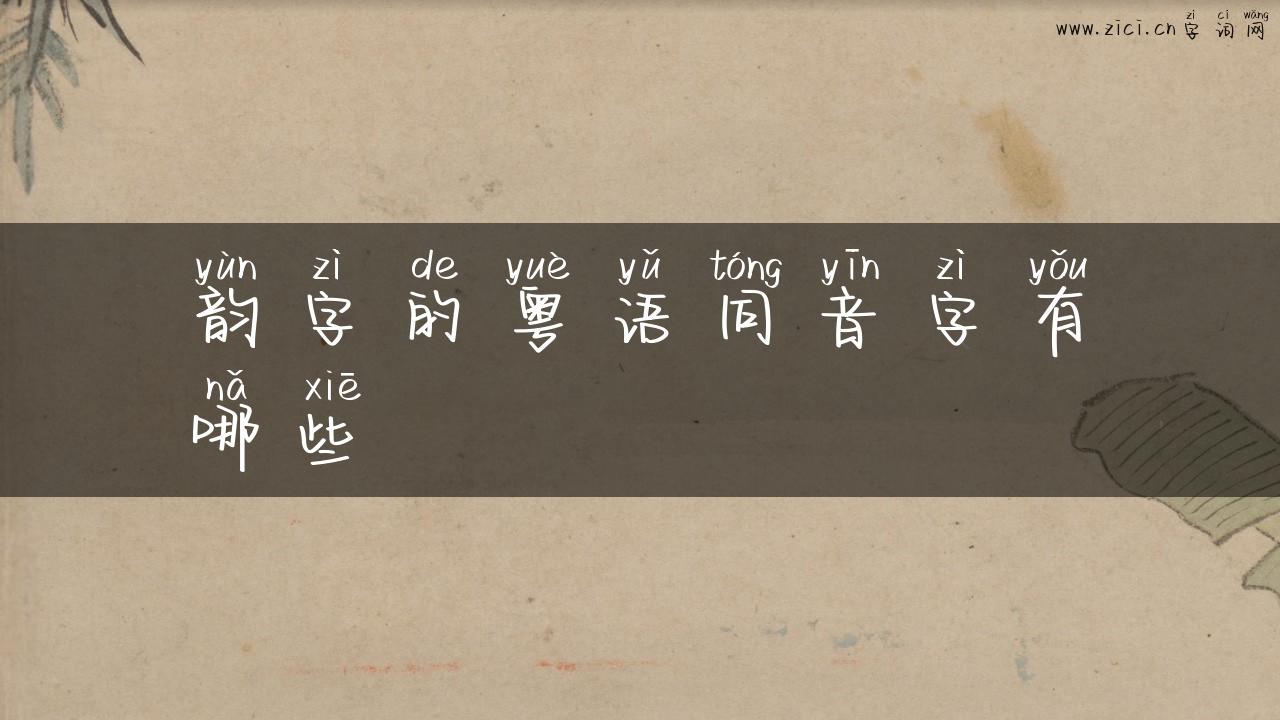 zì cí wǎng
www.zici.cn 字词网
yùn zì de yuè yǔ tóng yīn zì yǒu
韵字的粤语同音字有
nǎ xiē
哪些